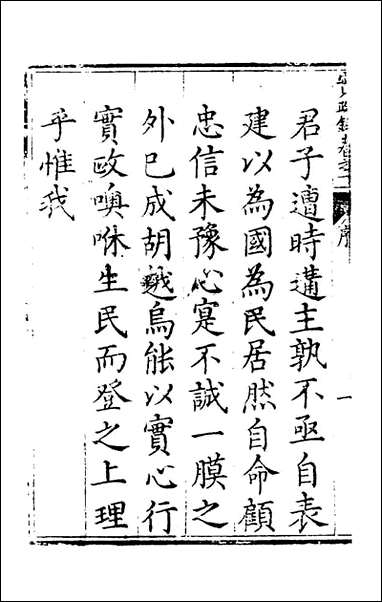 君子遭時遘主孰不亟自表
建以為國為民居然自命顧
忠信未豫心寔不誠一膜之
外已成胡越烏能以實心行
實政噢咻生民而登之上理
乎惟我
序
一